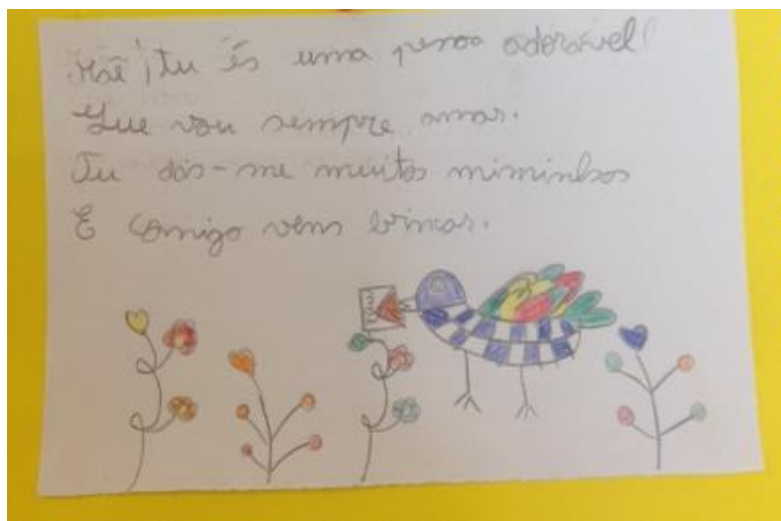 Mãe, tu és uma pessoa adorável!
Que vou sempre amar.
Tu dás-me muitos miminhos
E comigo vens brincar.